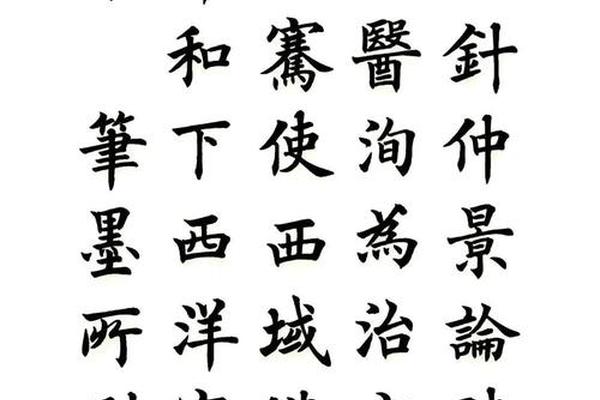 針仲景論
醫洵為治
騫使西域
和下西洋
筆墨所